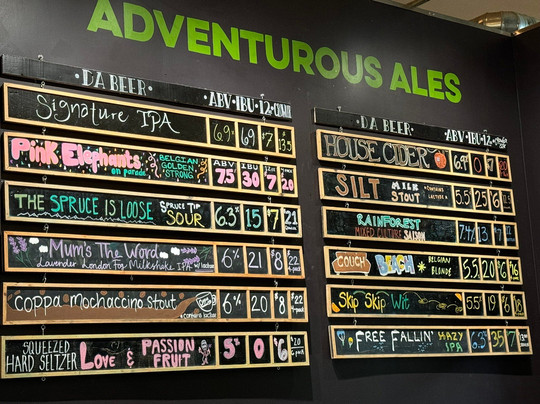 ADVENTUROUS ALES
·DA BEER· ·ABV·IBU·12·
Signature IPA 6.9% 69 $7 13.5
Pink Elephants on parade BELGIAN GOLDEN STRONG ABV 7.5 IBU 30 7 20
THE SPRUCE IS LOOSE SPRUCE TIP SOUR 6.3% 15 $7 21
Mum's The Word Lavender London Fog Milkshake IPA 6% 21 $8 22
Coppa Mochaccino Stout 6% 20 $8 $22
SQUEEZED HARD SELTZER LOVE & PASSION FRUIT 5% 0 $6 $20
·DA BEER· ABV·IBU·12·
HOUSE CIDER 6.9% 0
SILT MILK STOUT *CONTAINS LACTOSE* 5.5 25 $6
RAINFOREST MIXED CULTURE SAISON 7.4% 13
COUCH BEACH BELGIAN BLONDE 5.5 20 $6 $16
Skip Skip Wit 5.5% 19 $6 18
FREE FALLIN' HAZY IPA 6.3% 35 7